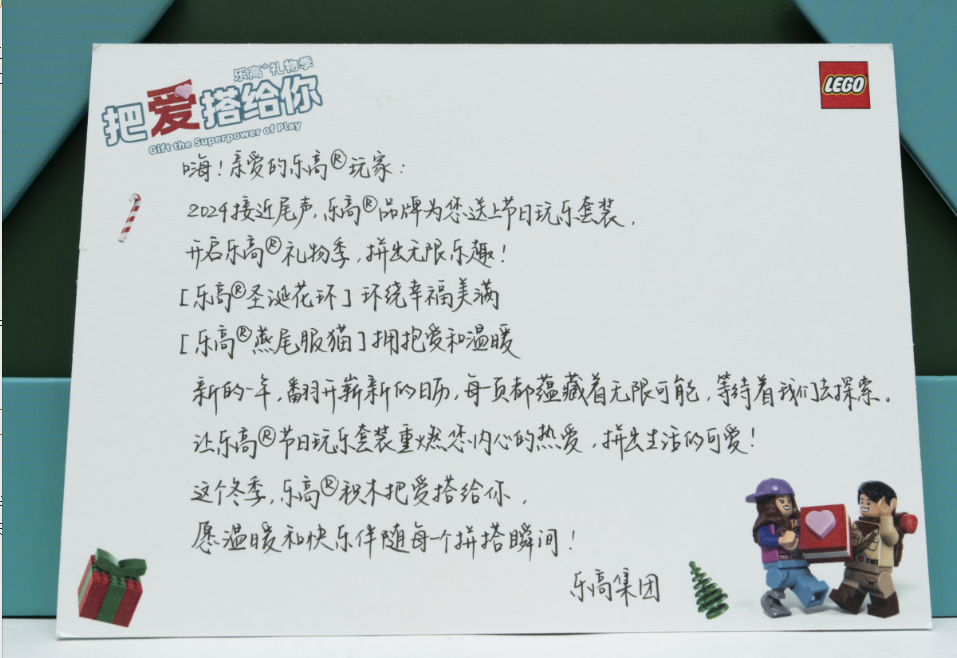 乐高®礼物季
把爱搭给你
Gift the Superpower of Play
LEGO
嗨！亲爱的乐高®玩家：
2024接近尾声，乐高®品牌为您送上节日玩乐套装，
开启乐高®礼物季，拼出无限乐趣！
[乐高®圣诞花环]环绕幸福美满
[乐高®燕尾服猫]拥抱爱和温暖
新的一年，翻开崭新的日历，每一页都蕴藏着无限可能，等待着我们去探索。
让乐高®节日玩乐套装重燃您内心的热爱，拼出生活的可爱！
这个冬季，乐高®积木把爱搭给你，
愿温暖和快乐伴随每个拼搭瞬间！
乐高集团